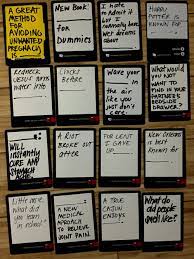 A GREAT
METHOD FOR
AVIODING
UNWANTED
PREGNACY
IS
New Book
for
Dummies
I Hate to
Admit it
But I
normally have
wet dreams
about
HAPPY
POTTER IS
KNOWN FOR
Redneck
JESUS
water into
Clocks
Before
Wave your
in the air
like you
just don't
care
What would
you NOT
want to find
in your
PARTNER'S
BEDSIDE
Will
INSTANTLY
CURE ANY
STOMACH
A RIOT
BROKE OUT
AFTER
FOR LENT
I GAVE
UP
NEW ORLEANS IS
best known
for
Little
what did
you learn
in school
A NEW
MEDICAL
APPROACH
TO RELIEVE
JOINT PAIN.
A TRUE
CAJUN
ENJOYS
What do
old people
smell like?